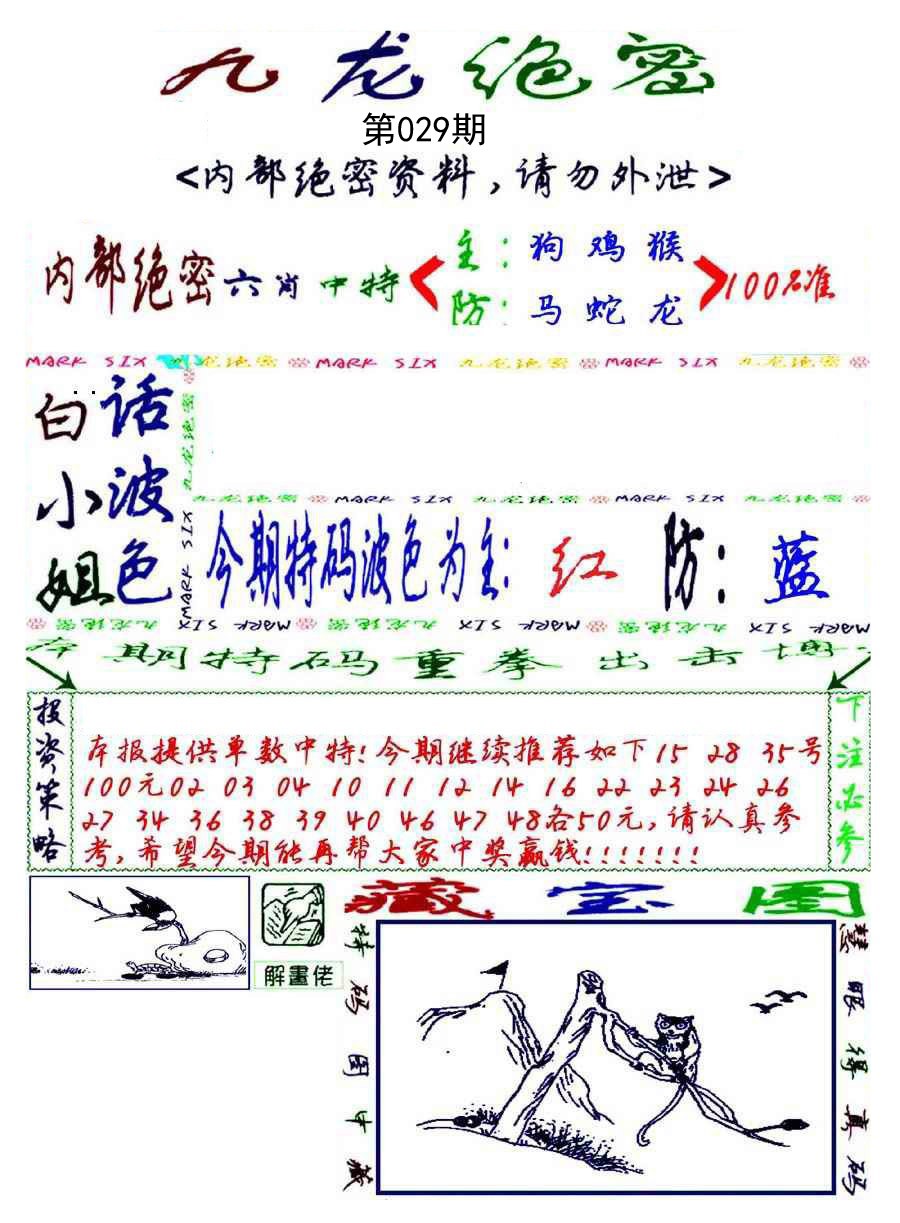 九龙绝密
第029期
<内部绝密资料,请勿外泄>
内部绝密六肖中特
主:狗鸡猴
防:马蛇龙
100%准
MARK SIX 九龙绝密 MARK SIX 九龙绝密 MARK SIX 九龙绝密
九龙绝密 MARK SIX
白话
小波
姐色
九龙绝密 MARK SIX 九龙绝密 MARK SIX 九龙绝密
今期特码波色为主:红 防:蓝
九龙绝密 MARK SIX 九龙绝密 MARK SIX 九龙绝密 MARK SIX
本期特码重拳出击博
投资策略
本报提供单数中特!今期继续推荐如下15 28 35号
100元02 03 04 10 11 12 14 16 22 23 24 26
27 34 36 38 39 40 46 47 48各50元,请认真参
考,希望今期能再帮大家中奖赢钱!!!!!!!
下注必参
解畫佬
藏宝图
特码图中藏
慧眼得真码